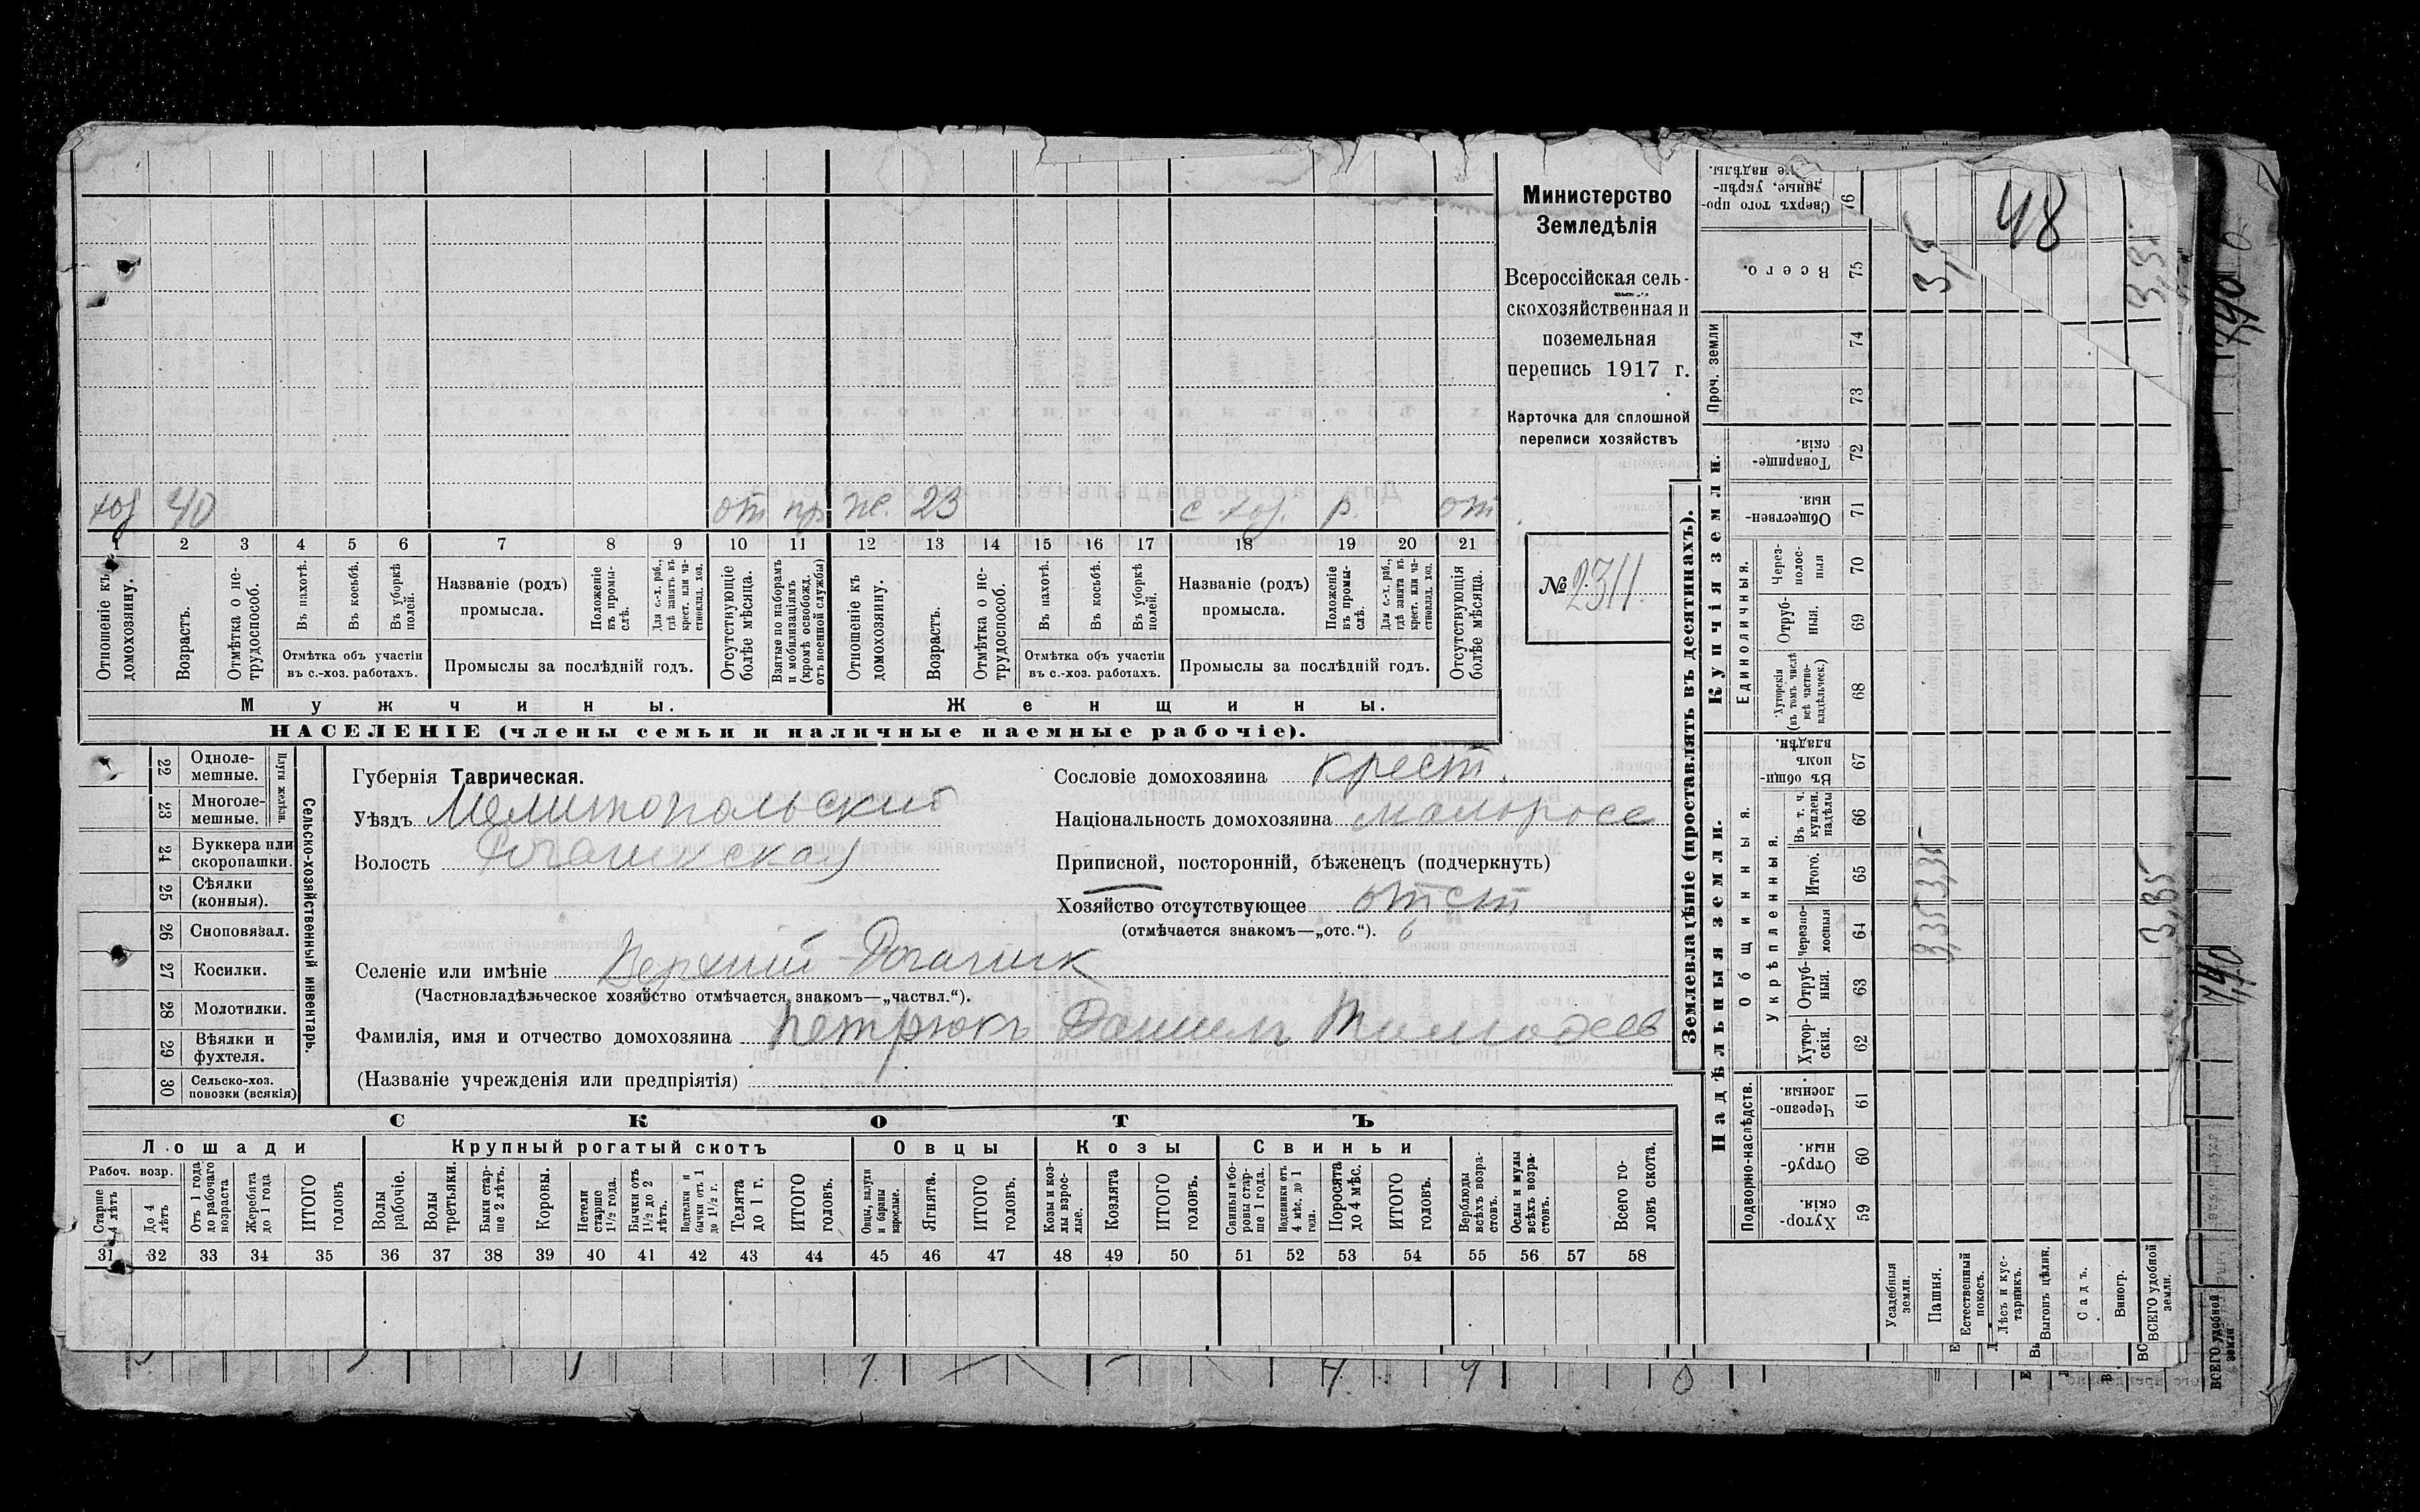 Министерство
Земледѣлія
Всероссійская сель-
скохозяйственная и
поземельная
перепись 1917 г.
Карточка для сплошной
переписи хозяйствъ
№ 2311.
хоз 40 от пр же. 23 с хоз. р. от
1 2 3 4 5 6 7 8 9 10 11 12 13 14 15 16 17 18 19 20 21
Отношеніе къ домохозяину.
Возрастъ.
Отмѣтка о не-трудоспособ.
Въ пахотѣ.
Въ косьбѣ.
Въ уборкѣ полей.
Отмѣтка объ участіи въ с.-хоз. работахъ.
Названіе (родъ) промысла.
Положеніе въ промы-слѣ.
Для с.-х. раб., гдѣ занятъ въ крест. или ча-стновлад. хоз.
Промыслы за послѣдній годъ.
Отсутствующіе болѣе мѣсяца.
Взятые по наборамъ и мобилизаціямъ (кромѣ освобожд. отъ военной службы)
Отношеніе къ домохозяину.
Возрастъ.
Отмѣтка о не-трудоспособ.
Въ пахотѣ.
Въ косьбѣ.
Въ уборкѣ полей.
Отмѣтка объ участіи въ с.-хоз. работахъ.
Названіе (родъ) промысла.
Положеніе въ промы-слѣ.
Для с.-х. раб., гдѣ занята въ крест. или ча-стновлад. хоз.
Промыслы за послѣдній годъ.
Отсутствующія болѣе мѣсяца.
Мужчины.
Женщины.
НАСЕЛЕНІЕ (члены семьи и наличные наемные рабочіе).
22 Одноле-мешные.
23 Многоле-мешные.
Плуги желѣзн.
24 Буккера или скоропашки.
25 Сѣялки (конныя).
26 Сноповязал.
27 Косилки.
28 Молотилки.
29 Вѣялки и фухтеля.
30 Сельско-хоз. повозки (всякія)
Сельско-хозяйственный инвентарь.
Губернія Таврическая.
Уѣздъ Мелитопольский
Волость Рогачикская
Сословіе домохозяина крест.
Національность домохозяина малоросс
Приписной, посторонній, бѣженецъ (подчеркнуть)
Хозяйство отсутствующее отст
(отмѣчается знакомъ—„отс.“).
Селеніе или имѣніе Верхний Рогачик
(Частновладѣльческое хозяйство отмѣчается знакомъ—„частвл.“).
Фамилія, имя и отчество домохозяина Петрюкъ Данилъ Тимофеев
(Названіе учрежденія или предпріятія)
СКОТЪ
Лошади
Крупный рогатый скотъ
Овцы
Козы
Свиньи
Рабоч. возр.
Старше 4 лѣтъ
До 4 лѣтъ
Отъ 1 года до рабочаго возраста
Жеребята до 1 года
ИТОГО головъ
Волы рабочіе.
Волы третьяки.
Быки стар-ше 2 лѣтъ.
Коровы.
Нетели старше 1½ года.
Бычки отъ 1½ до 2 лѣтъ.
Подтелки и бычки отъ 1 до 1½ г.
Телята до 1 г.
ИТОГО головъ.
Овцы, валухи и бараны взрослые.
Ягнята.
ИТОГО головъ.
Козы и коз-лы взрос-лые.
Козлята
ИТОГО головъ.
Свиньи и бо-ровы стар-ше 1 года.
Подсвинки отъ 4 мѣс. до 1 года.
Поросята до 4 мѣс.
ИТОГО головъ.
Верблюды всѣхъ возра-стовъ.
Ослы и мулы всѣхъ возра-стовъ.
Всего го-ловъ скота.
31 32 33 34 35 36 37 38 39 40 41 42 43 44 45 46 47 48 49 50 51 52 53 54 55 56 57 58
Землевладѣніе (проставлять въ десятинахъ).
Купчія земли.
Надѣльныя земли.
Сверхъ того про-данные, укрѣп-
76
Всего. 75
Проч. земли 74 73
Товарище-скія. 72
Обществен-ныя. 71
Единоличныя.
Через-полос-ныя 70
Отруб-ныя. 69
Хуторскія (въ томъ числѣ всѣ частно-владѣльческ.) 68
Общинныя.
Въ общин-номъ владѣн. 67
Укрѣпленныя.
Въ т. ч. куплен. надѣлы 66
Итого. 65
Черезпо-лосныя 64
Отруб-ныя. 63
Хутор-скія. 62
Подворно-наслѣдств.
Черезпо-лосныя. 61
Отруб-ныя. 60
Хутор-скія. 59
Усадебныя земли.
Пашня.
Естественный покосъ.
Лѣсъ и кус-тарникъ.
Выгонъ цѣлин.
Садъ.
Виногр.
ВСЕГО удобной земли.
48
3,35
3,35
ВСЕГО удобной земли